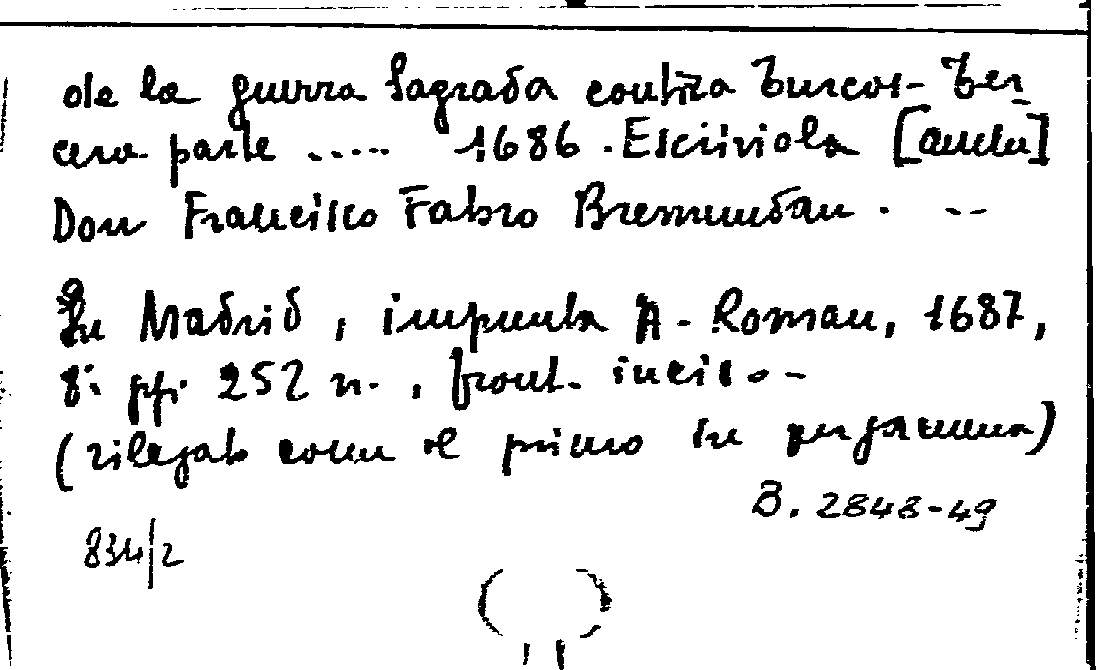 de la guerra Sagrada contra Turcos - Ter
cera parte ..... 1686. Escriviola [anche]
Don Francisco Fabro Bremundan . --
In Madrid, imprenta A. Roman, 1687,
8° pp. 252 n., front. inciso -
(rilegato come il primo in pergamena)
B. 2848-49
834/2